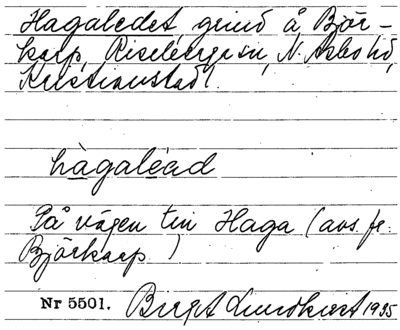 Hagaledet, grind å Björ-
karp, Riseberga sn, N. Åsbo hd,
Kristianstad l.
hàgaléad
På vägen till Haga (avs. fr.
Björkarp.)
Nr 5501. Birgit Lundkvist 1935